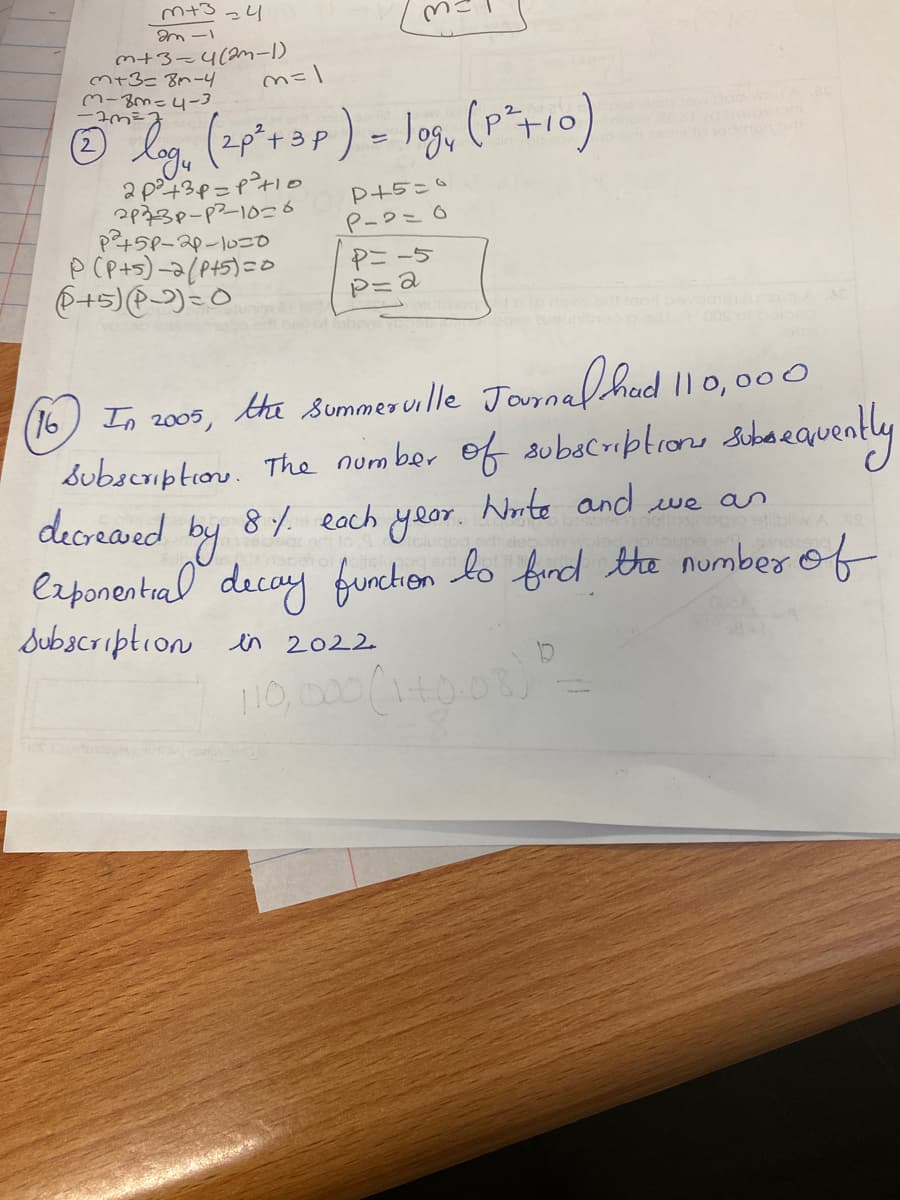 m+3 = 4
2m-1
m=1
m+3=4(2m-1)
m+3=8m-4 m=1
m-8m=4-3
-7m=7
② log₄ (2p²+3p) = log₄ (p²+10)
2p²+3p=p²+10 p+5=0
2p²+3p-p²-10=0 p-2=0
p²+5p-2p-10=0
p(p+5)-2(p+5)=0 p=-5
(p+5)(p-2)=0 p=2
16 In 2005, the Summerville Journal had 110,000
subscription. The number of subscriptions subsequently
decreased by 8% each year. Write and use an
exponential decay function to find the number of
subscription in 2022
110,000(1+0.08) =